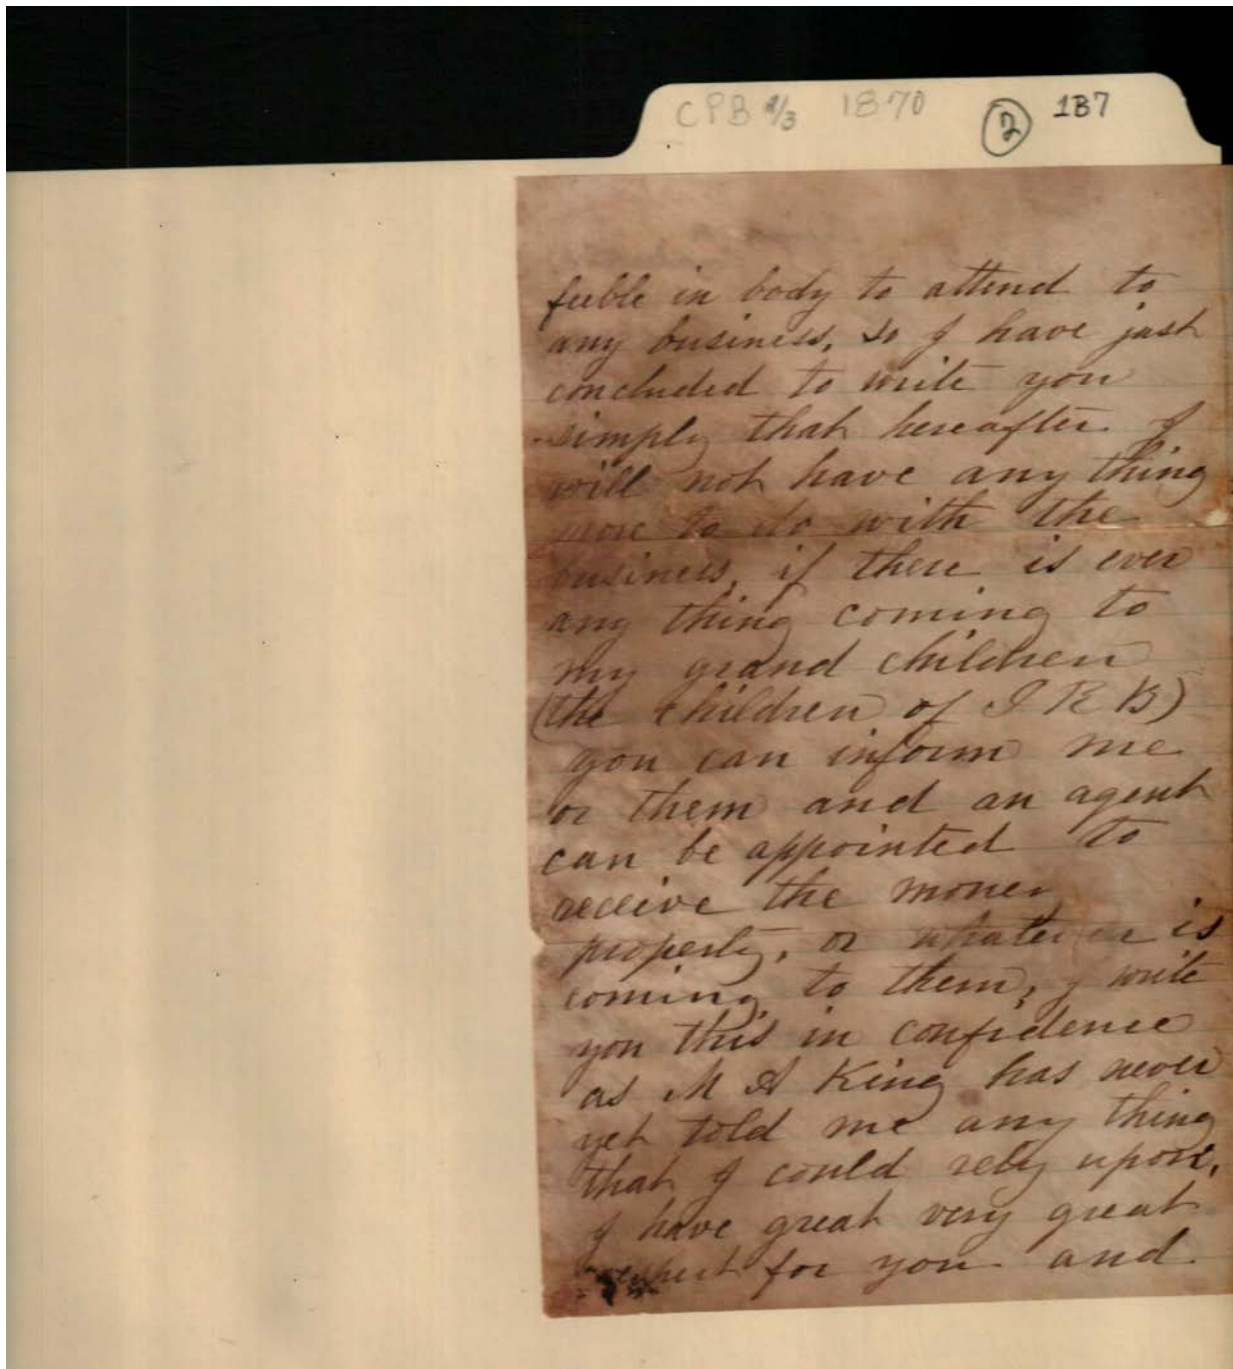 CPB 2/3 1870 2 1B7
feeble in body to attend to
any business, so I have just
concluded to write you
simply that hereafter I
will not have any thing
more to do with the
business, if there is ever
any thing coming to
my grand children
(the children of I R B)
you can inform me
or them and an agent
can be appointed to
receive the money
property, or whatever is
coming to them, I write
you this in confidence
as M A King has never
yet told me any thing
that I could rely upon,
I have great very great
respect for you and